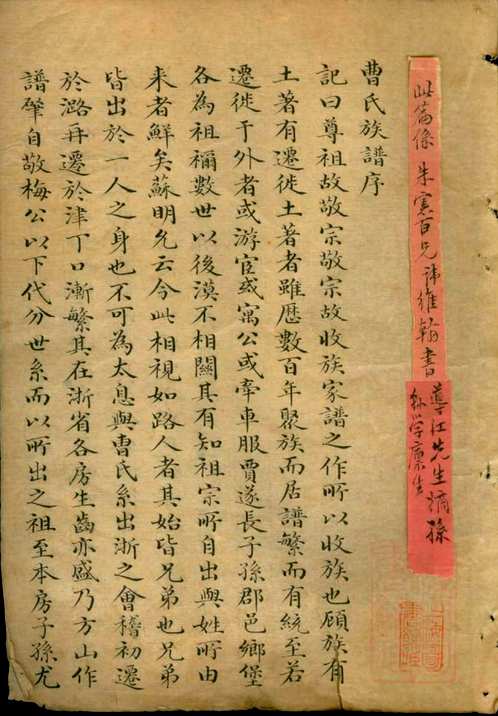 此篇係 朱憲百兄諱維翰書
導江先生嫡孫
縣學廩生
曹氏族譜序
記曰尊祖故敬宗敬宗故收族家譜之作所以收族也顧族有
土著有遷徙土著者雖歷數百年聚族而居譜繁而有統至若
遷徙于外者或游宦或寓公或牽車服賈遂長子孫郡邑鄉堡
各為祖禰數世以後漠不相關其有知祖宗所自出與姓所由
来者鮮矣蘇明允云今此相視如路人者其始皆兄弟也兄弟
皆出於一人之身也不可為太息與曹氏系出浙之會稽初遷
於潞再遷於津丁口漸繁其在浙省各房生齒亦盛乃方山作
譜肇自敬梅公以下代分世系而以所出之祖至本房子孫尤